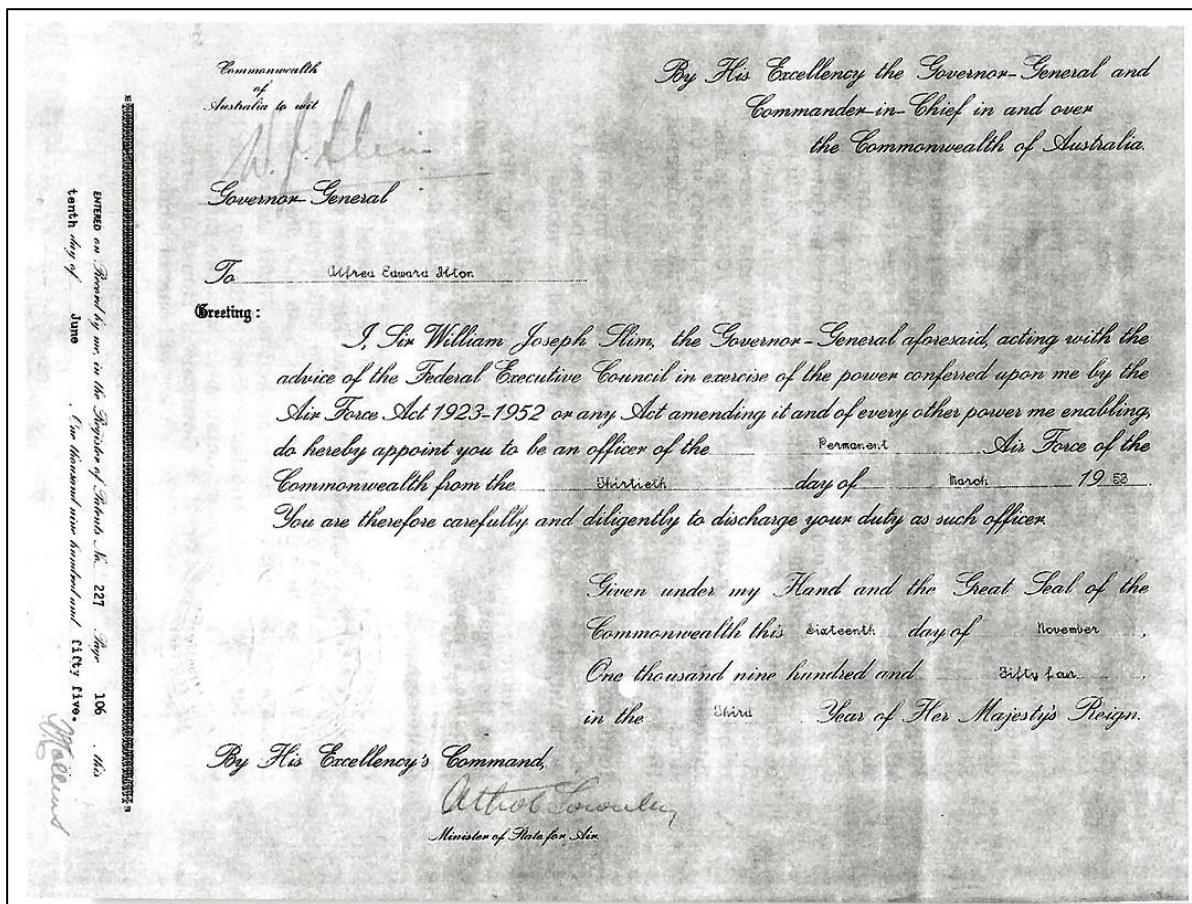 Commonwealth
of
Australia to wit
W. J. Slim
Governor-General
By His Excellency the Governor-General and
Commander-in-Chief in and over
the Commonwealth of Australia.
To Alfred Edward
Greeting:
I, Sir William Joseph Slim, the Governor-General aforesaid, acting with the
advice of the Federal Executive Council in exercise of the power conferred upon me by the
Air Force Act 1923-1952 or any Act amending it and of every other power me enabling,
do hereby appoint you to be an officer of the Permanent Air Force of the
Commonwealth from the Thirtieth day of March 19 53.
You are therefore carefully and diligently to discharge your duty as such officer.
Given under my Hand and the Great Seal of the
Commonwealth this Sixteenth day of November,
One thousand nine hundred and Fifty four,
in the Third Year of Her Majesty's Reign.
By His Excellency's Command,
Athol Townley
Minister of State for Air
ENTERED on Record by me, in the Register of Patents No. 227 Page 106, this
tenth day of June, One thousand nine hundred and fifty five.